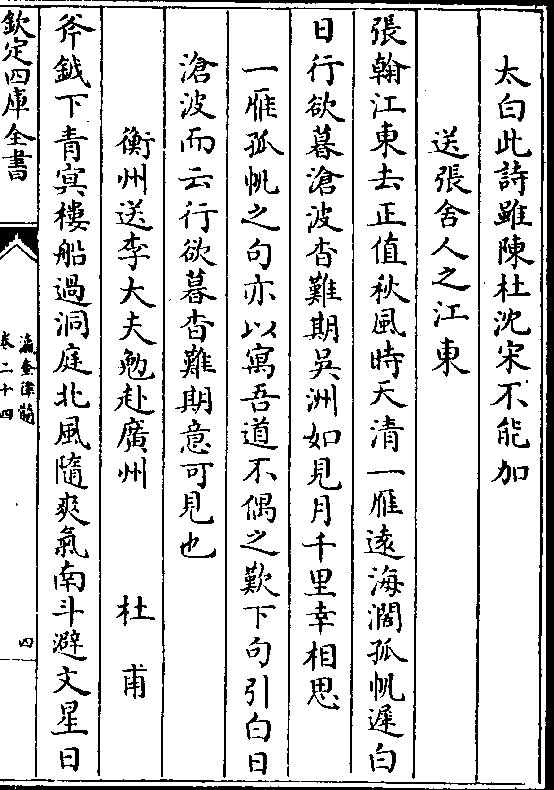 太白此詩雖陳杜沈宋不能加
送張舍人之江東
張翰江東去正值秋風時天清一雁遠海濶孤帆遲白
日行欲暮滄波杳難期吳洲如見月千里幸相思
一雁孤帆之句亦以寓吾道不偶之歎下句引白日
滄波而云行欲暮杳難期意可見也
衡州送李大夫勉赴廣州　杜甫
斧鉞下青冥樓船過洞庭北風隨爽氣南斗避文星日
欽定四庫全書
瀛奎律髓
卷二十四
四